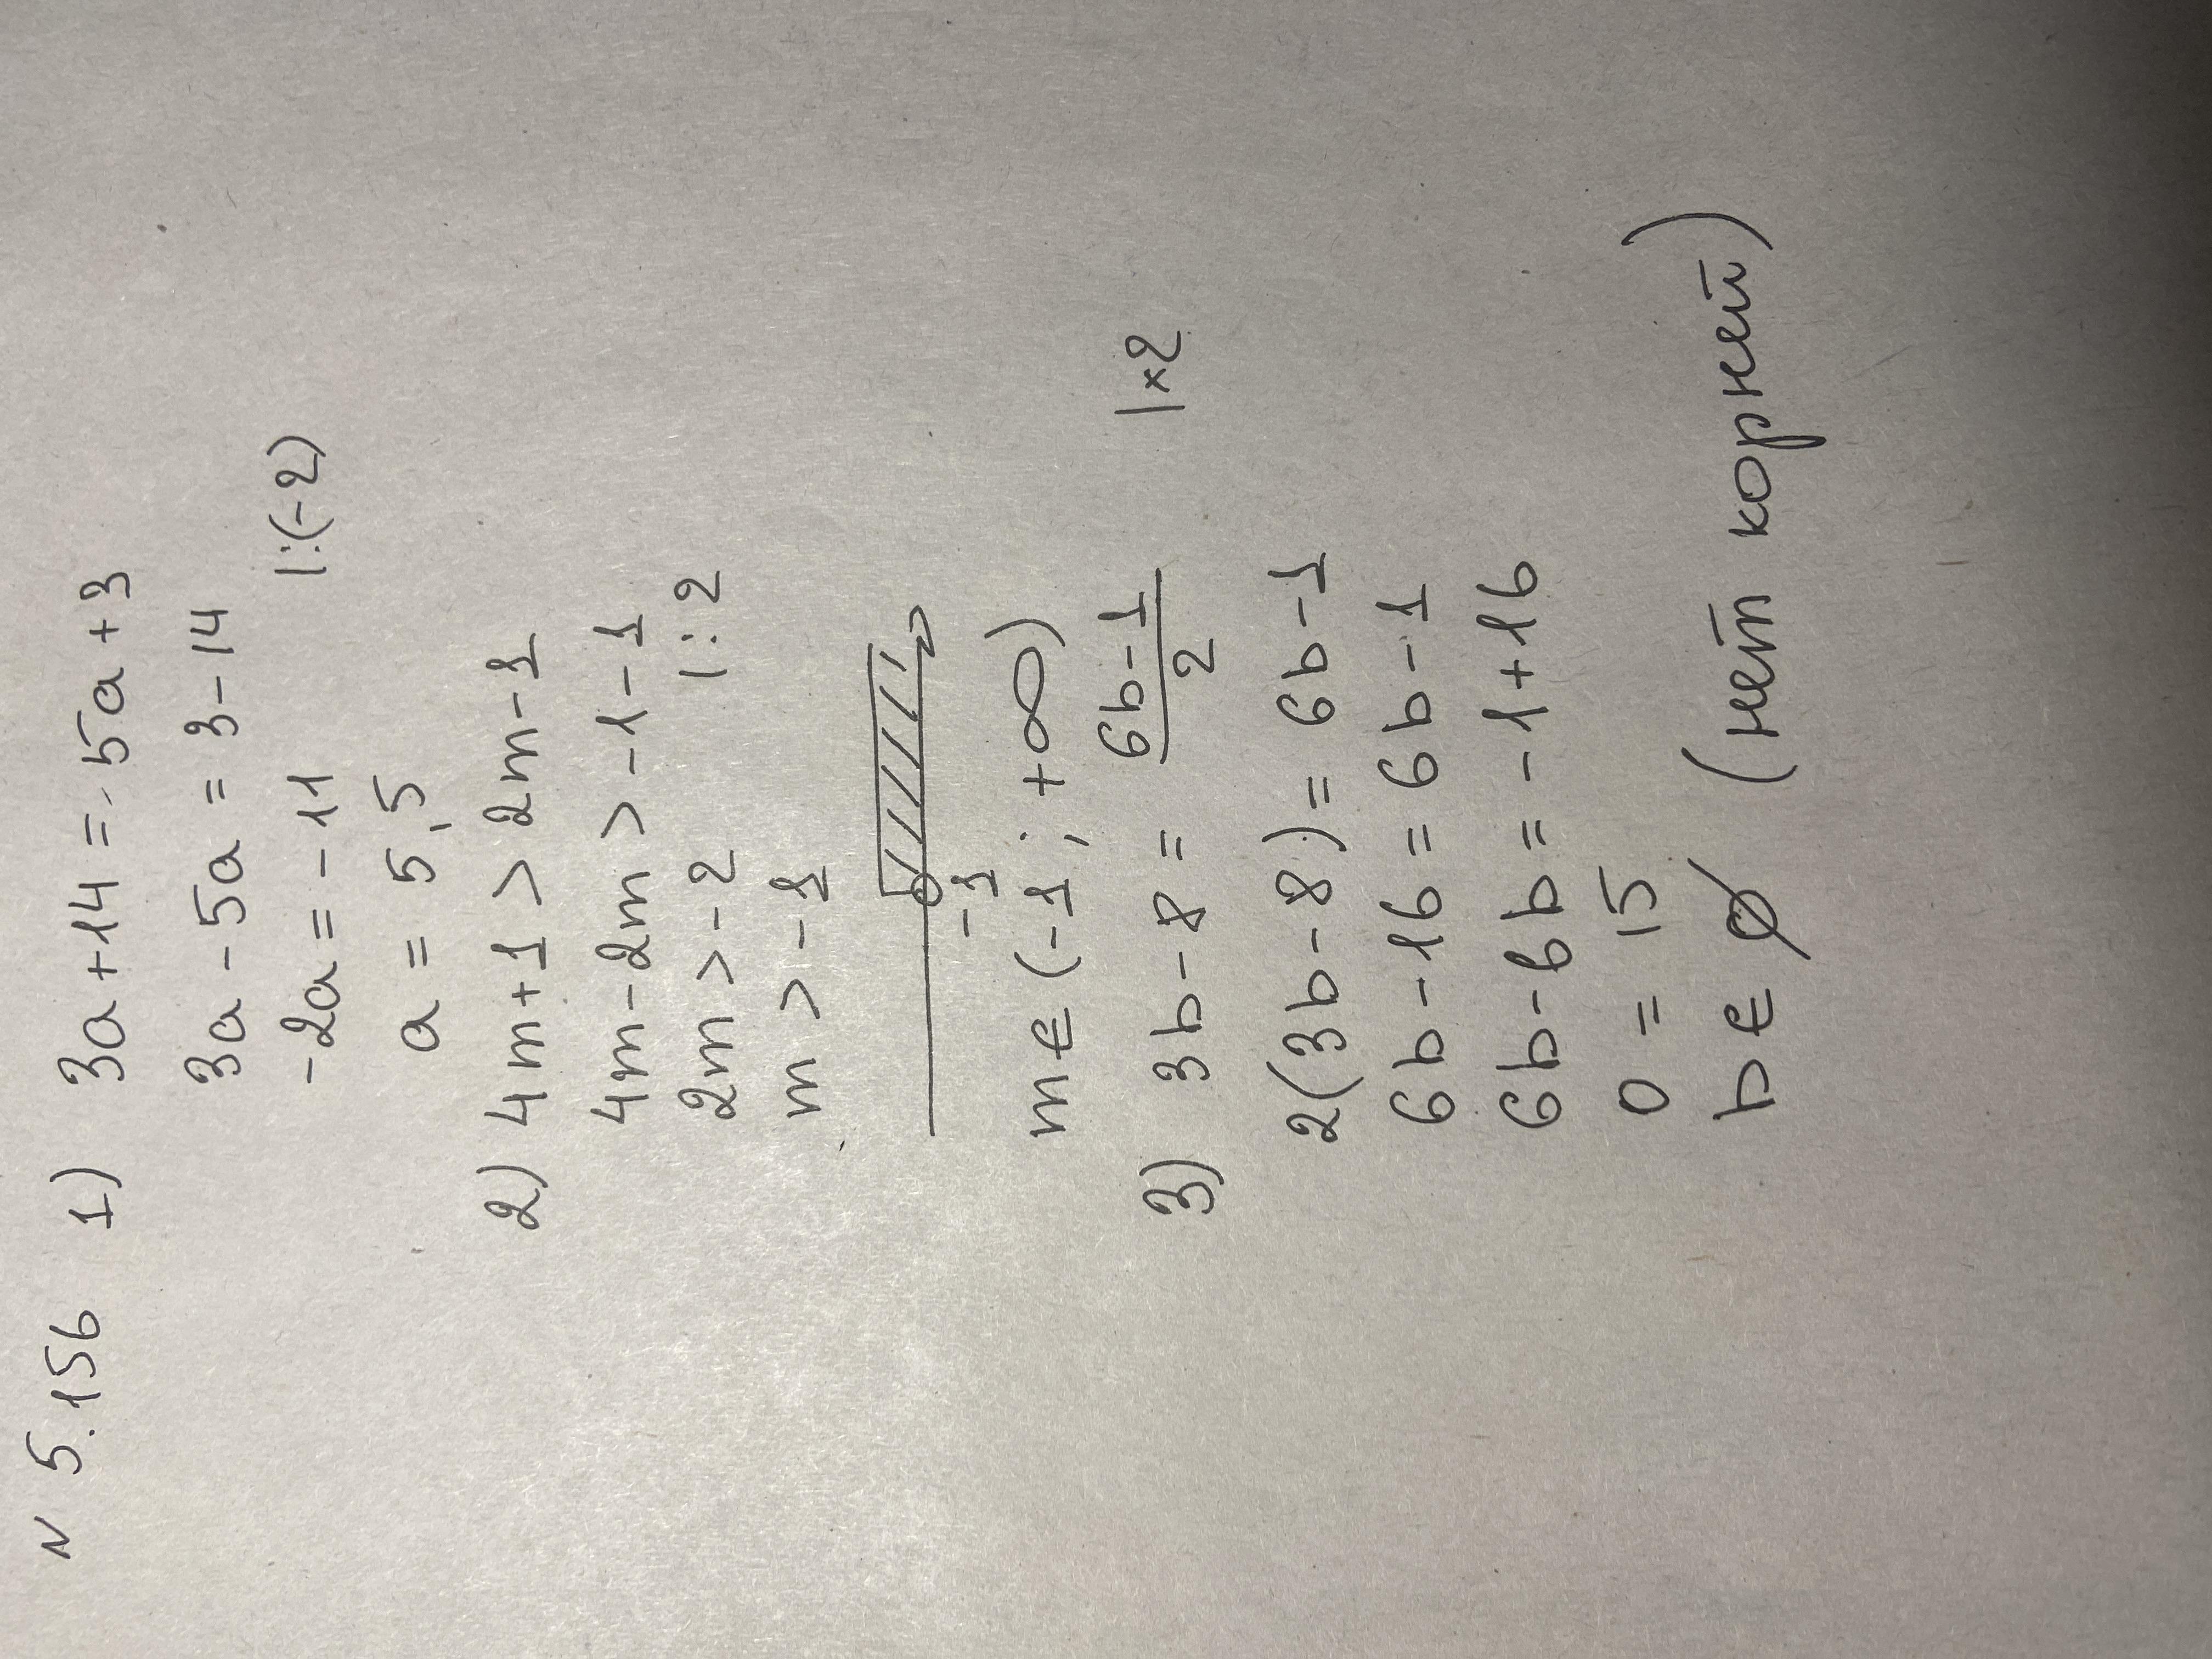 N 5.156 1) 3a+14=5a+3
3a-5a=3-14
-2a=-11 |:(-2)
a=5,5
2) 4m+1>2m-1
4m-2m>-1-1
2m>-2 |:2
m>-1
-1
m∈(-1;+∞)
3) 3b-8=\frac{6b-1}{2} |×2
2(3b-8)=6b-1
6b-16=6b-1
6b-6b=-1+16
0=15
b∈∅ (нет корней)